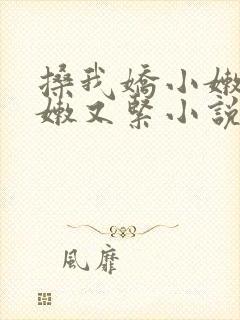 搡我嬌小嫩
嫩又緊小說
風靡